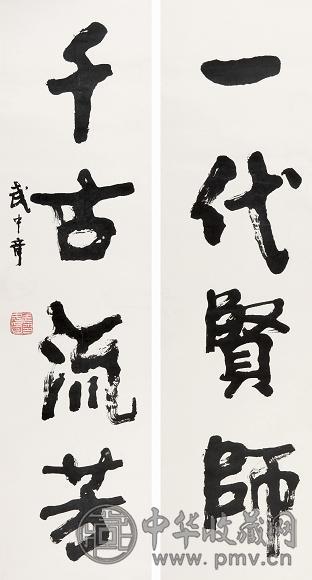 一代賢師
千古流芳
武中奇
中华收藏网
www.pmv.cn